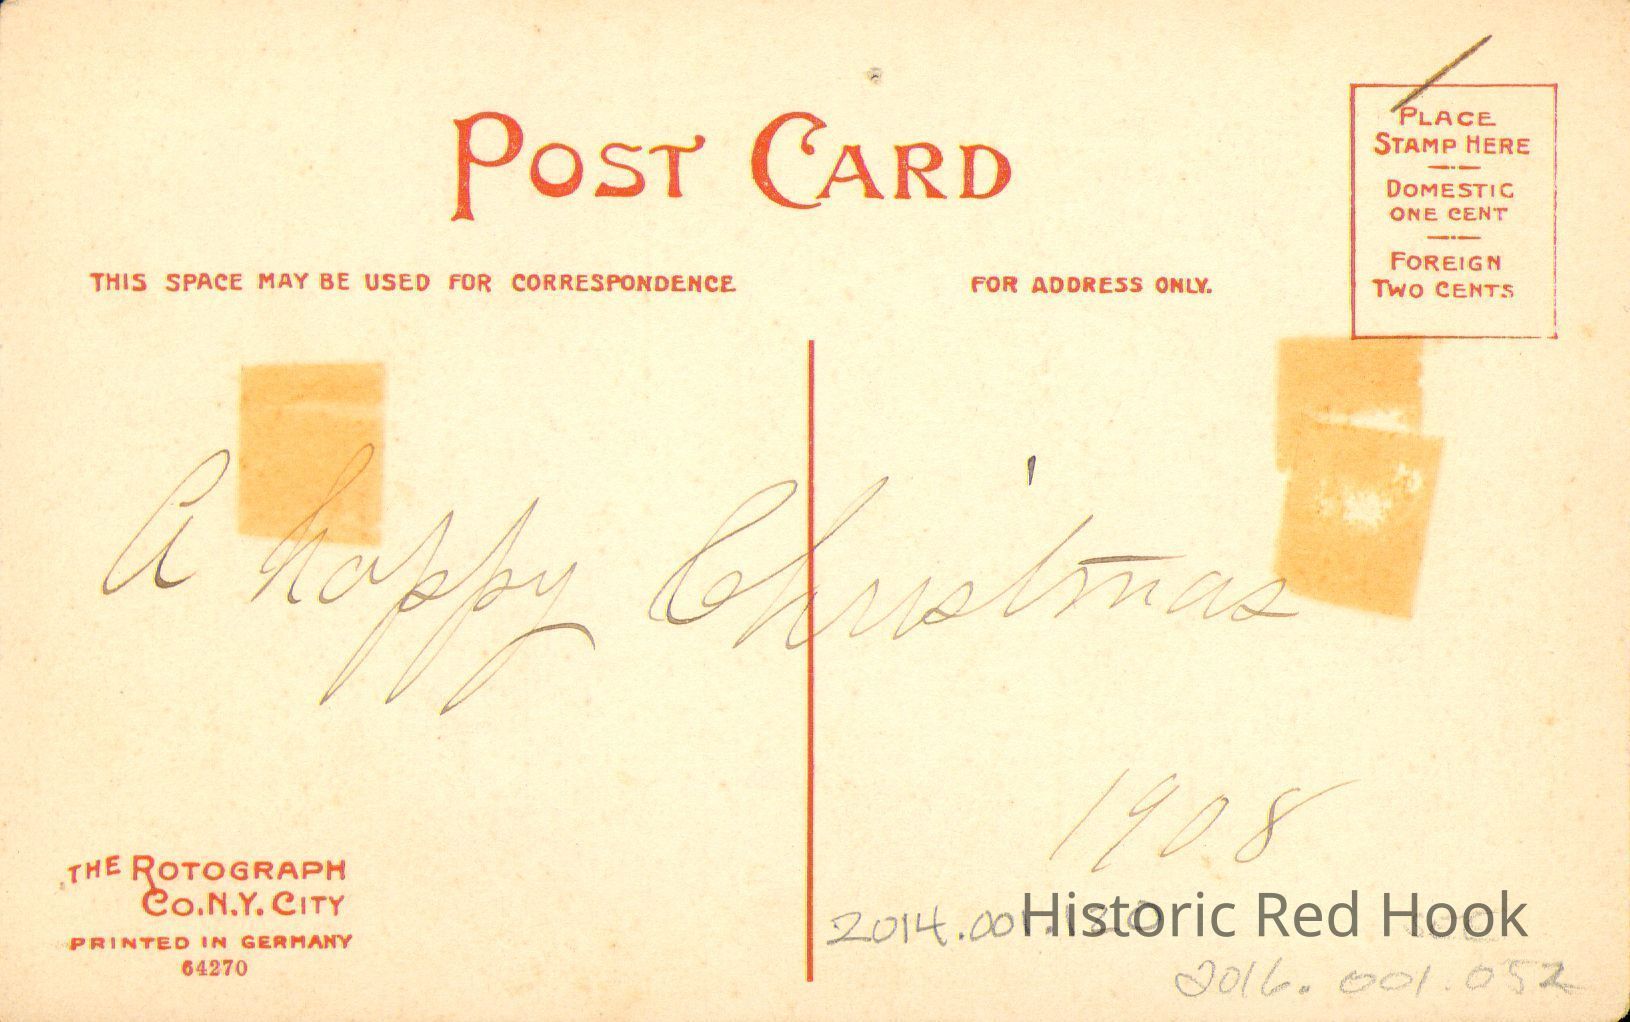 POST CARD
PLACE
STAMP HERE
DOMESTIC
ONE CENT
FOREIGN
TWO CENTS
THIS SPACE MAY BE USED FOR CORRESPONDENCE
FOR ADDRESS ONLY.
A happy Christmas
1908
THE ROTOGRAPH
CO. N.Y. CITY
PRINTED IN GERMANY
64270
2014.001.120
Historic Red Hook
2016.001.052